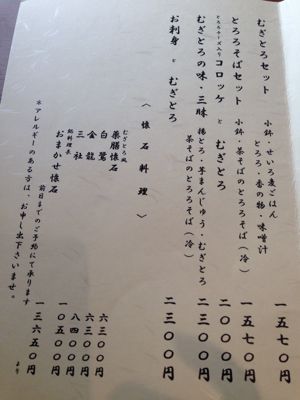 むぎとろセット
小鉢・せいろ麦ごはん
とろろ・香の物・味噌汁
一五七〇円
とろろそばセット 小鉢・茶そばのとろろそば(冷) 一五七〇円
とろろチーズ入り コロッケ と むぎとろ 二〇〇〇円
むぎとろの味・三昧 揚とろ・芋まんじゅう・むぎとろ 二三〇〇円
茶そばのとろろそば(冷)
お刺身 と むぎとろ 二三〇〇円
〈懐石料理〉
むぎとろ風 薬膳懐石 六三〇〇円
白鷺 六三〇〇円
金龍 八四〇〇円
三社 一〇五〇〇円
総料理長 おまかせ懐石 一三六五〇円 より
前日までのご予約にて承ります
アレルギーのある方は、お申し出下さいませ。